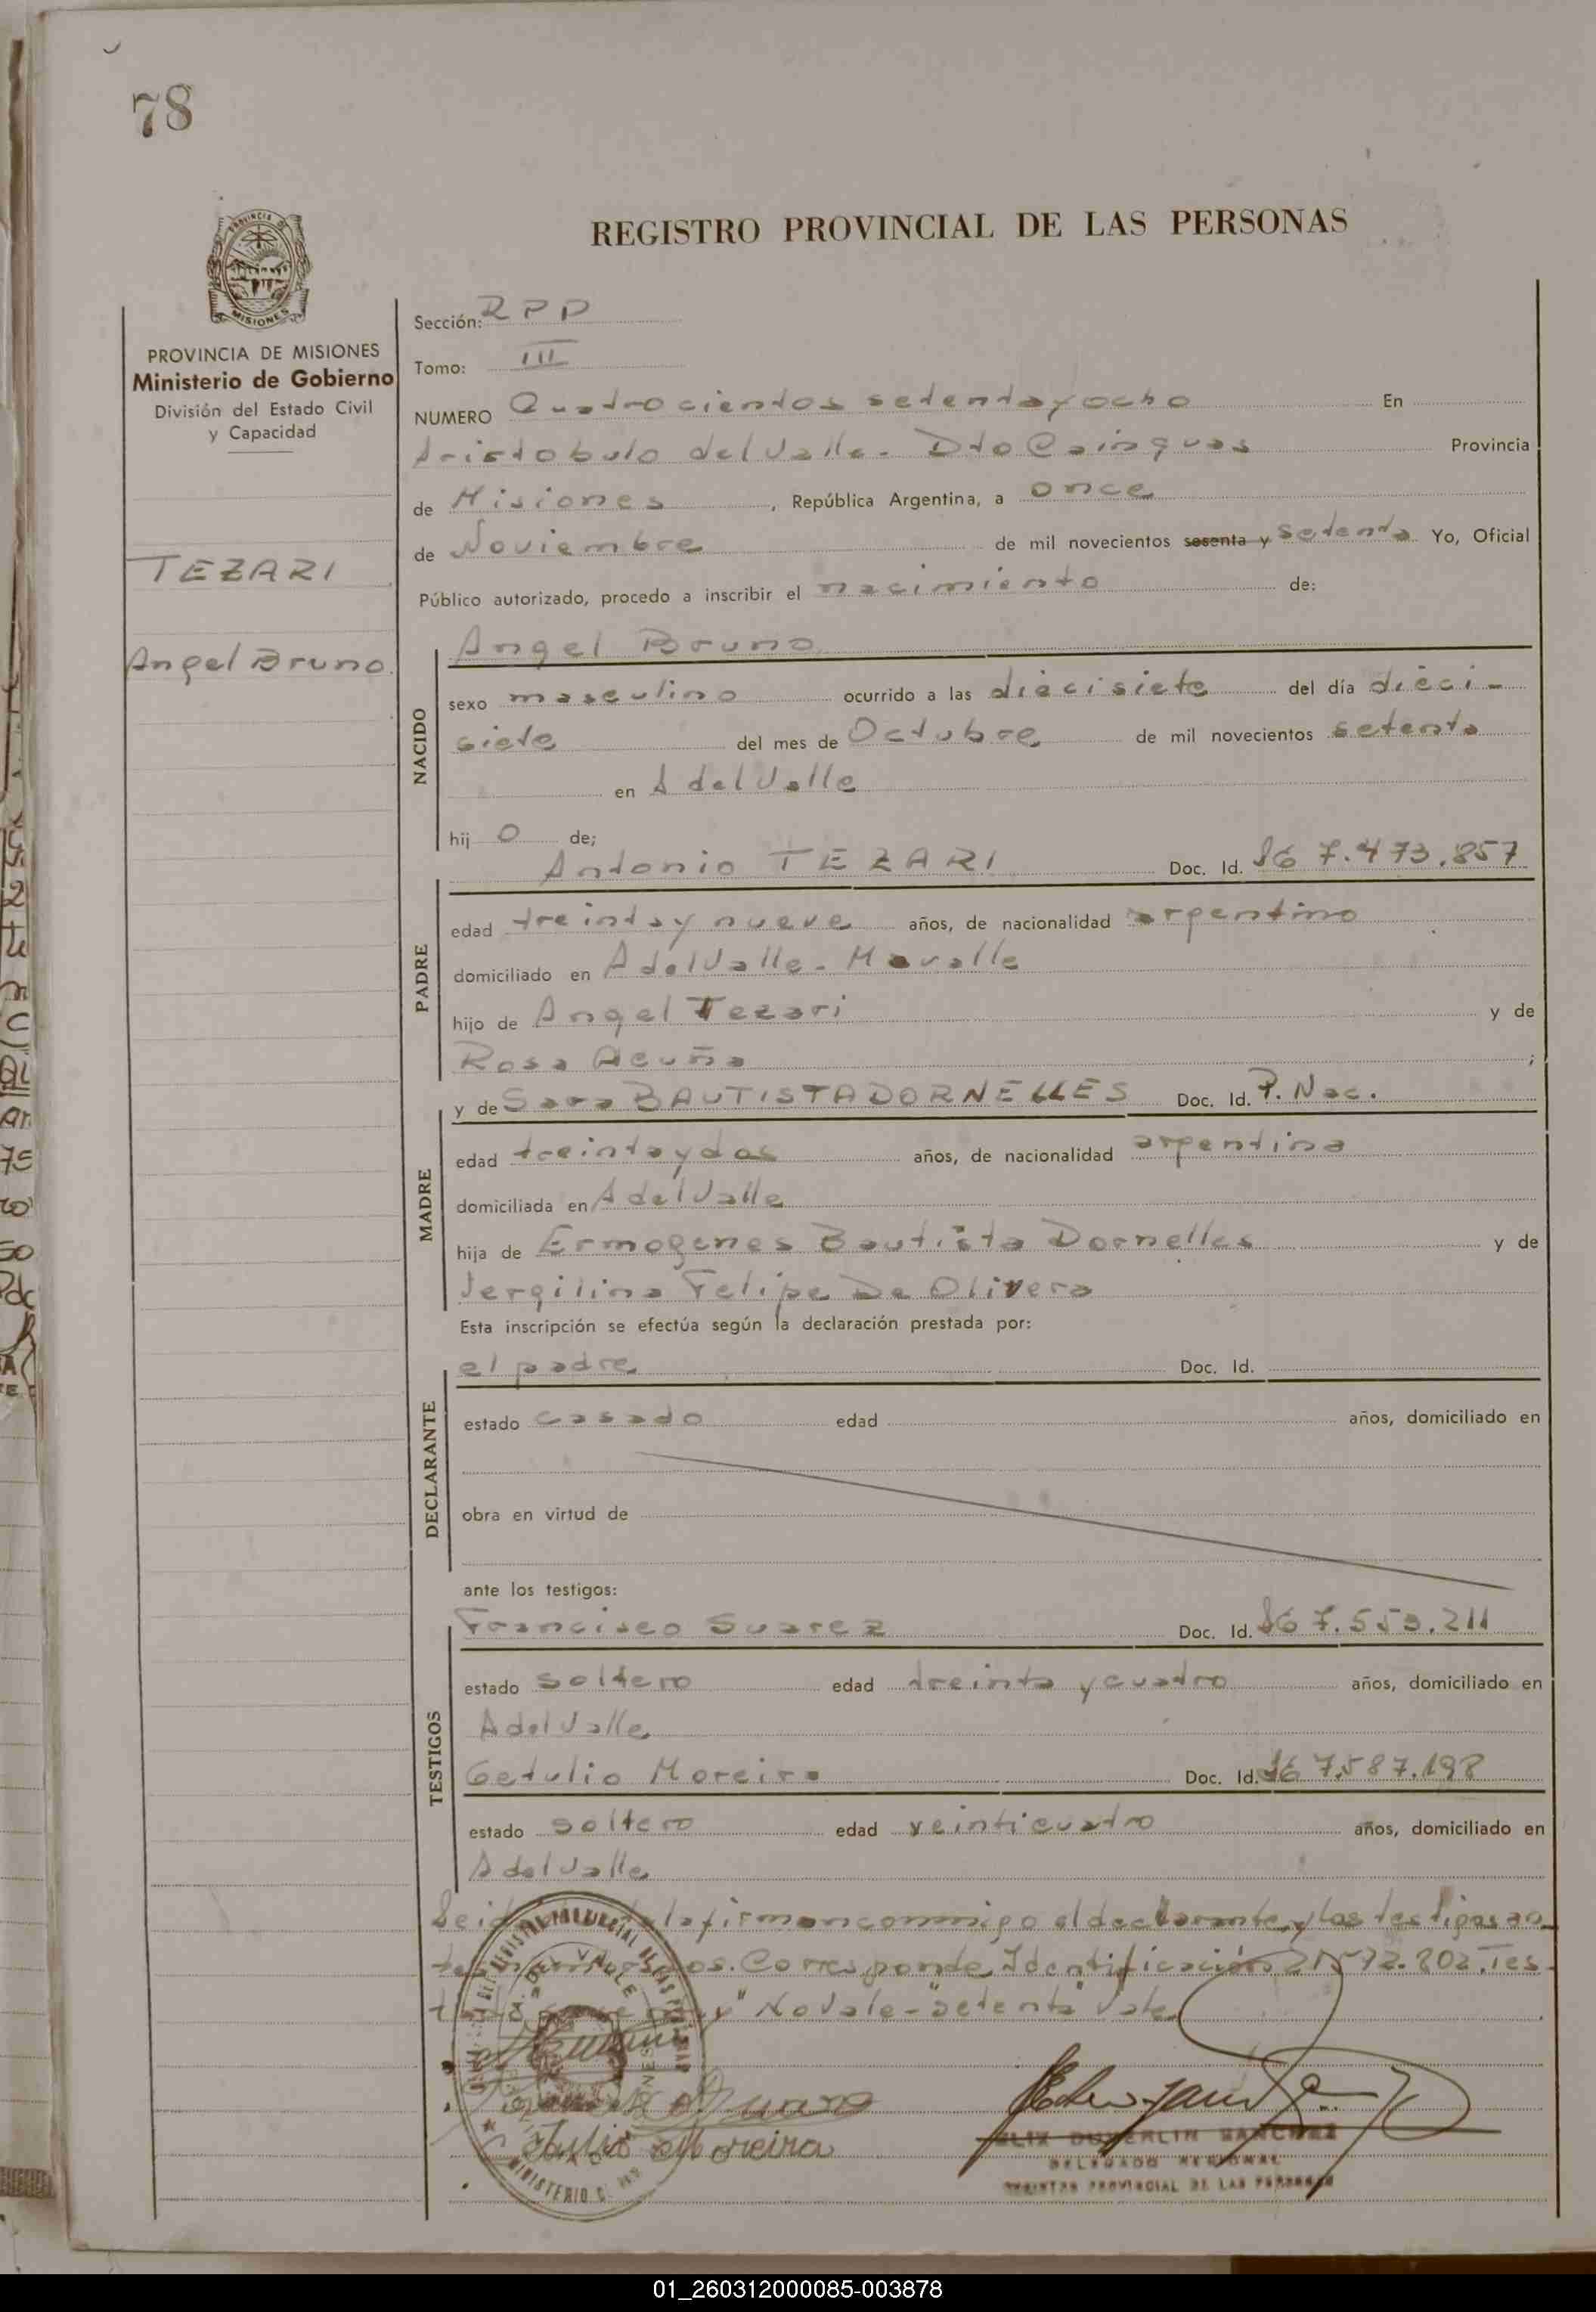 78
PROVINCIA DE MISIONES
REGISTRO PROVINCIAL DE LAS PERSONAS
PROVINCIA DE MISIONES
Ministerio de Gobierno
División del Estado Civil
y Capacidad
TEZARI
Angel Bruno.
Sección: RPP
Tomo: III
NUMERO Quatrocientos setenta y ocho En
Aristobulo del Valle. Dto Cainguas Provincia
de Misiones, República Argentina, a once
de Noviembre de mil novecientos sesenta y setenta Yo, Oficial
Público autorizado, procedo a inscribir el nacimiento de:
NACIDO
Angel Bruno
sexo masculino ocurrido a las diecisiete del día dieci-
siete del mes de Octubre de mil novecientos setenta
en A del Valle
hij o de;
PADRE
Antonio TEZARI Doc. Id. 7.473.857
edad treinta y nueve años, de nacionalidad argentino
domiciliado en A del Valle -
hijo de Angel Tezari y de
Rosa Acuña ;
MADRE
y de Sara BAUTISTA DORNELLES Doc. Id. P. Nac.
edad treinta y dos años, de nacionalidad argentina
domiciliada en A del Valle
hija de Ermogenes Bautista Dornelles y de
Vergilina Felipe De Olivera
Esta inscripción se efectúa según la declaración prestada por:
DECLARANTE
el padre Doc. Id.
estado casado edad años, domiciliado en
obra en virtud de
ante los testigos:
TESTIGOS
Francisco Suarez Doc. Id. 7.553.211
estado soltero edad treinta y cuatro años, domiciliado en
A del Valle
Getulio Moreira Doc. Id. 7.587.198
estado soltero edad veinticuatro años, domiciliado en
A del Valle
la firman conmigo el declarante y los testigos an-
Corresponde Identificación 21572.802. Tes-
y" No Vale - "setenta" Vale
Moreira
DELEGADO REGIONAL
REGISTRO PROVINCIAL DE LAS PERSONAS
01_260312000085-003878